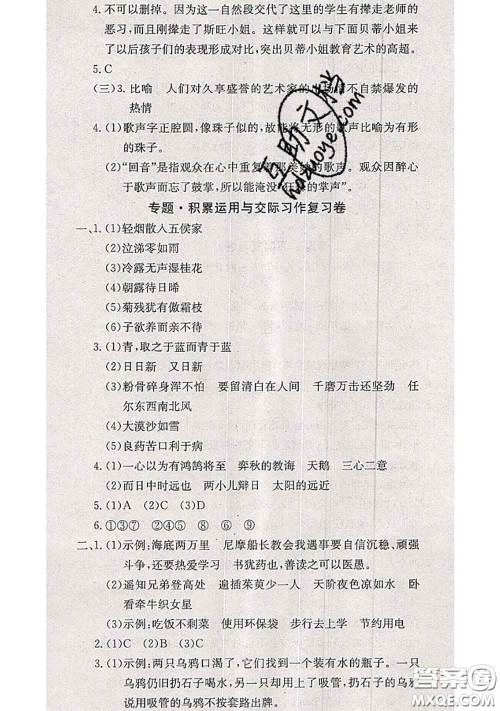 4.不可以删掉。因为这一自然段交代了这里的学生有撵走老师的
恶习,而且刚撵走了斯旺小姐,这样就可以与下面贝蒂小姐来了
以后孩子们的表现形成对比,突出贝蒂小姐教育艺术的高超。
5.C
(三)3.比喻 人们对久享盛誉的艺术家的出场情不自禁爆发的
热情
4.(1)歌声字正腔圆,像珠子似的,故能将无形的歌声比喻为有形
的珠子。
(2)“回音”是指观众在心中重复着那美妙的歌声。观众因醉心
于歌声而忘了鼓掌,所以能淹没“狂
专题·积累运用与交际习作复习卷
一、1.(1)轻烟散入五侯家
(2)泣涕零如雨
(3)冷露无声湿桂花
(4)朝露待日晞
(5)菊残犹有傲霜枝
(6)子欲养而亲不待
3.(1)青,取之于蓝而青于蓝
(2)日日新 又日新
(3)粉骨碎身浑不怕 要留清白在人间 千磨万击还坚劲 任
尔东西南北风
(4)大漠沙如雪
(5)良药苦口利于病
4.(1)一心以为有鸿鹄将至 弈秋的教诲 天鹅 三心二意
(2)而日中时远也 两小儿辩日 太阳的远近
5.(1)A (2)C (3)D
6.①③⑦ ②④⑤ ⑥ ⑧ ⑨
二、1.(1)示例:海底两万里 尼摩船长教会我遇事要自信沉稳、顽强
斗争,还要热爱学习 书犹药也,善读之可以医愚。
(2)遥知兄弟登高处 遍插茱萸少一人 天阶夜色凉如水 卧
看牵牛织女星
(3)示例:吃饭不剩菜 使用环保袋 步行去上学 节约用电
2.(1)C (2)B
3.(1)示例:两只乌鸦口渴了,它们找到一个装有水的瓶子。一只
乌鸦仍旧扔石子喝水,另一只却用上了吸管,扔石子的乌鸦怒
说用吸管的乌鸦不按套路出牌。
互助文档
hazuoye.com
作业帮
MXQE.COM